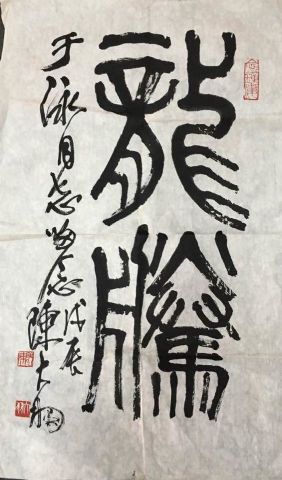 龍騰
于泳同志留念戊辰陳大羽